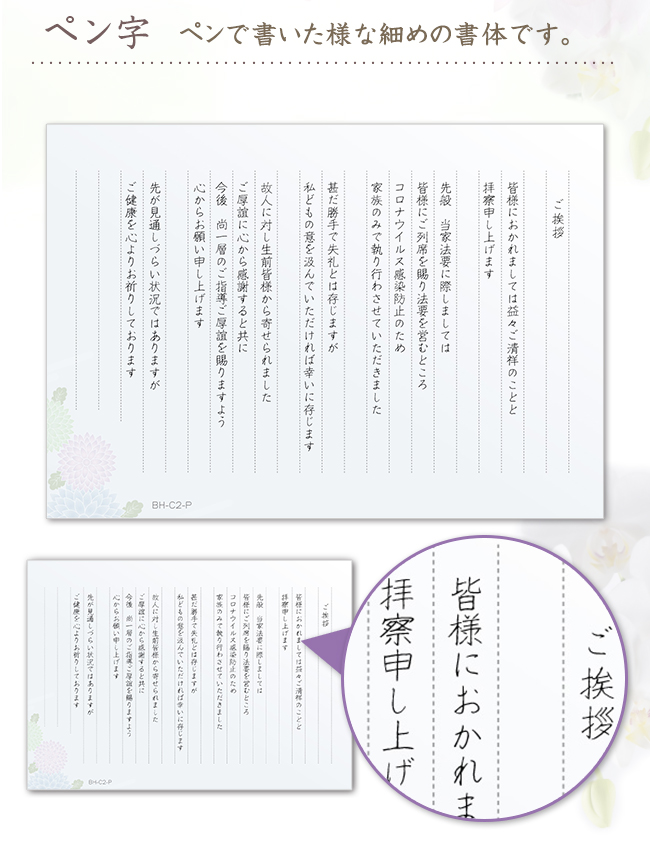 ペン字 ペンで書いた様な細めの書体です。
ご挨拶
皆様におかれましては益々ご清祥のことと
拝察申し上げます
先般 当家法要に際しましては
皆様にご列席を賜り法要を営むところ
コロナウイルス感染防止のため
家族のみで執り行わさせていただきました
甚だ勝手で失礼とは存じますが
私どもの意を汲んでいただければ幸いに存じます
故人に対し生前皆様から寄せられました
ご厚誼に心から感謝すると共に
今後 尚一層のご指導ご厚誼を賜りますよう
心からお願い申し上げます
先が見通しづらい状況ではありますが
ご健康を心よりお祈りしております
BH-C2-P
ご挨拶
皆様におかれましては益々ご清祥のことと
拝察申し上げます
先般 当家法要に際しましては
皆様にご列席を賜り法要を営むところ
コロナウイルス感染防止のため
家族のみで執り行わさせていただきました
甚だ勝手で失礼とは存じますが
私どもの意を汲んでいただければ幸いに存じます
故人に対し生前皆様から寄せられました
ご厚誼に心から感謝すると共に
今後 尚一層のご指導ご厚誼を賜りますよう
心からお願い申し上げます
先が見通しづらい状況ではありますが
ご健康を心よりお祈りしております
BH-C2-P
ご挨拶
皆様におかれま
拝察申し上げ